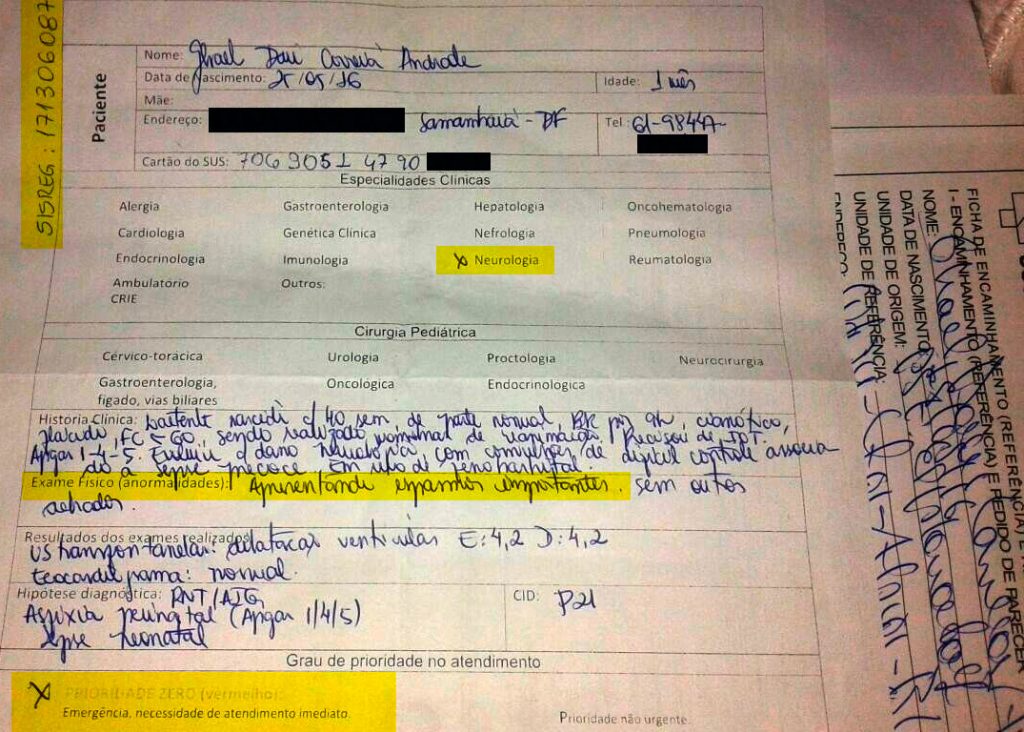 SISREG: 171306087
Paciente
Nome: Davi Correia Andrade
Data de Nascimento: 25/05/16 Idade: 1 mês
Mãe:
Endereço: Samambaia - DF Tel.: 61-9844
Cartão do SUS: 706 9051 4790
Especialidades Clínicas
Alergia Gastroenterologia Hepatologia Oncohematologia
Cardiologia Genética Clínica Nefrologia Pneumologia
Endocrinologia Imunologia X Neurologia Reumatologia
Ambulatório CRIE Outros:
Cirurgia Pediátrica
Cérvico-torácica Urologia Proctologia Neurocirurgia
Gastroenterologia, Oncológica Endocrinologica
fígado, vias biliares
História Clínica: Lactente c/ 40 sem de parto normal, BR por 9h, cianótico,
FC < 60, sendo realizado de reanimação. Precisou de IOT.
Apgar 1-4-5. Evoluiu c/ dano com convulsão de difícil controle associa
do à sepse precoce. Em uso de fenobarbital.
Exame Físico (anormalidades): Apresentando espasmos importantes. sem outros
achados.
Resultados dos exames realizados:
US transfontanelar: dilatação E: 4,2 D: 4,2
Ecocardiograma: normal.
Hipótese diagnóstica: RNT/AIG CID: P21
Asfixia perinatal (Apgar 1/4/5)
Sepse neonatal
Grau de prioridade no atendimento
X PRIORIDADE ZERO (vermelho):
Emergência, necessidade de atendimento imediato.
Prioridade não urgente.
FICHA DE ENCAMINHAMENTO (REFERÊNCIA) E PEDIDO DE PARECER
I - ENCAMINHAMENTO (REFERÊNCIA)
NOME:
DATA DE NASCIMENTO
UNIDADE DE ORIGEM:
UNIDADE DE REFERÊNCIA:
ENDEREÇO: